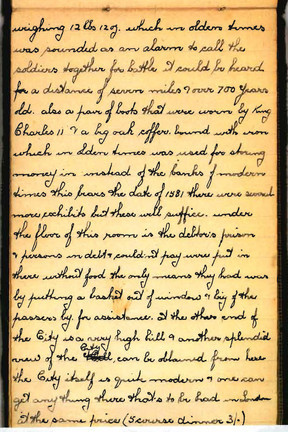 weighing 12 lbs 12 oz. which in olden times
was sounded as an alarm to call the
soldiers together for battle it could be heard
for a distance of seven miles & over 700 years
old. also a pair of boots that were worn by King
Charles II & a big oak coffer, bound with iron
which in olden times was used for storing
money in instead of the banks of modern
times this bears the date of 1581 there were several
more exhibits but these will suffice. under
the floor of this room is the debtors prison
& persons in debt & could.nt pay were put in
there without food the only means they had was
by putting a basket out of window & beg of the
passers by for assistance. at the other end of
the City is a very high hill & another splendid
view of the City can be obtained from here
the City itself is quite modern & one can
get any thing there that's to be had in London
at the same price (5 course dinner 3/-)